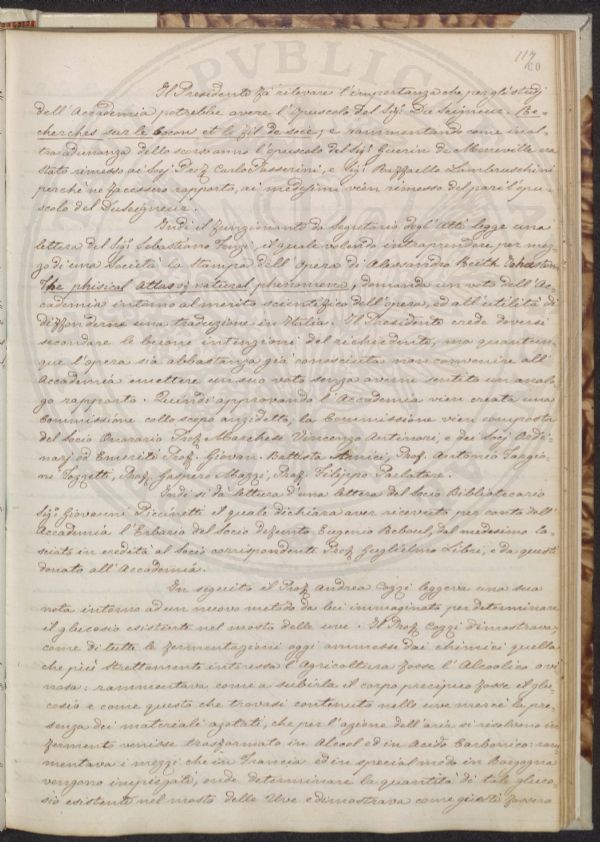 117
60
Il Presidente fa rilevare l'importanza che per gli studj
dell'Accademia potrebbe avere l'opuscolo del Sig.
cherches sur le Cocon et le fil de soie, e rammentando come in al-
tra adunanza dello scorso anno l'opuscolo del Sig. Guerin de Mereville era
stato rimesso ai Socj Prof. Carlo Passerini, e Sig. Raffaello Lambruschini
perchè ne facessero rapporto, ai medesimi vien rimesso del pari l'opu-
scolo del Duseigneur.
Indi il funzionante da Segretario degl'Atti legge una
lettera del Sig. Sebastiano il quale volendo intraprendere per mez-
zo di una Società la stampa dell'Opera di Alessandro Keith Johnston
The phisical Atlas of natural phenomena, domanda un voto dell'Ac-
cademia intorno al merito scientifico dell'opera, ed all'utilità di
diffonderne una traduzione in Italia. Il Presidente crede doversi
secondare le buone intenzioni del richiedente, ma quantun-
que l'opera sia abbastanza già conosciuta non convenire all'
Accademia emettere un suo voto senza averne sentito un analo-
go rapporto. Quindi approvando l'Accademia vien creata una
Commissione collo scopo anzidetto, la Commissione vien composta
del Socio Onorario Prof. Marchese Vincenzo Antinori, e dei Socj Ordi-
narj ed Emeriti Prof. Giovan. Battista Amici, Prof. Antonio Targio-
ni Tozzetti, Prof. Gaspero Mazzi, Prof. Filippo Parlatore.
Indi si dà lettura d'una lettera del Socio Bibliotecario
Sig. Giovanni Piccinetti il quale dichiara aver ricevuto per conto dell'
Accademia l'Erbario del Socio defunto Eugenio Reboul, dal medesimo la-
sciato in eredità al Socio corrispondente Prof. Guglielmo Libri, e da questi
donato all'Accademia.
In seguito il Prof. Andrea Cozzi leggeva una sua
nota intorno ad un nuovo metodo da lui immaginato per determinare
il glucosio esistente nel mosto delle uve. Il Prof. Cozzi dimostrava,
come di tutte le fermentazioni oggi ammesse dai chimici quella
che più strettamente interessa l'Agricoltura fosse l'Alcoolica o vi
nosa: rammentava come a subirla il corpo precipuo fosse il glu-
cosio e come questo che trovasi contenuto nelle uve mercè la pre-
senza dei materiali azotati, che per l'azione dell'aria si risolvono in
fermento venisse trasformato in Alcool ed in Acido Carbonico: ram
mentava i mezzi che in Francia ed in special modo in Borgogna
vengono impiegati, onde determinare la quantità di tale gluco-
sio esistente nel mosto delle Uve e dimostrava come questi fossero